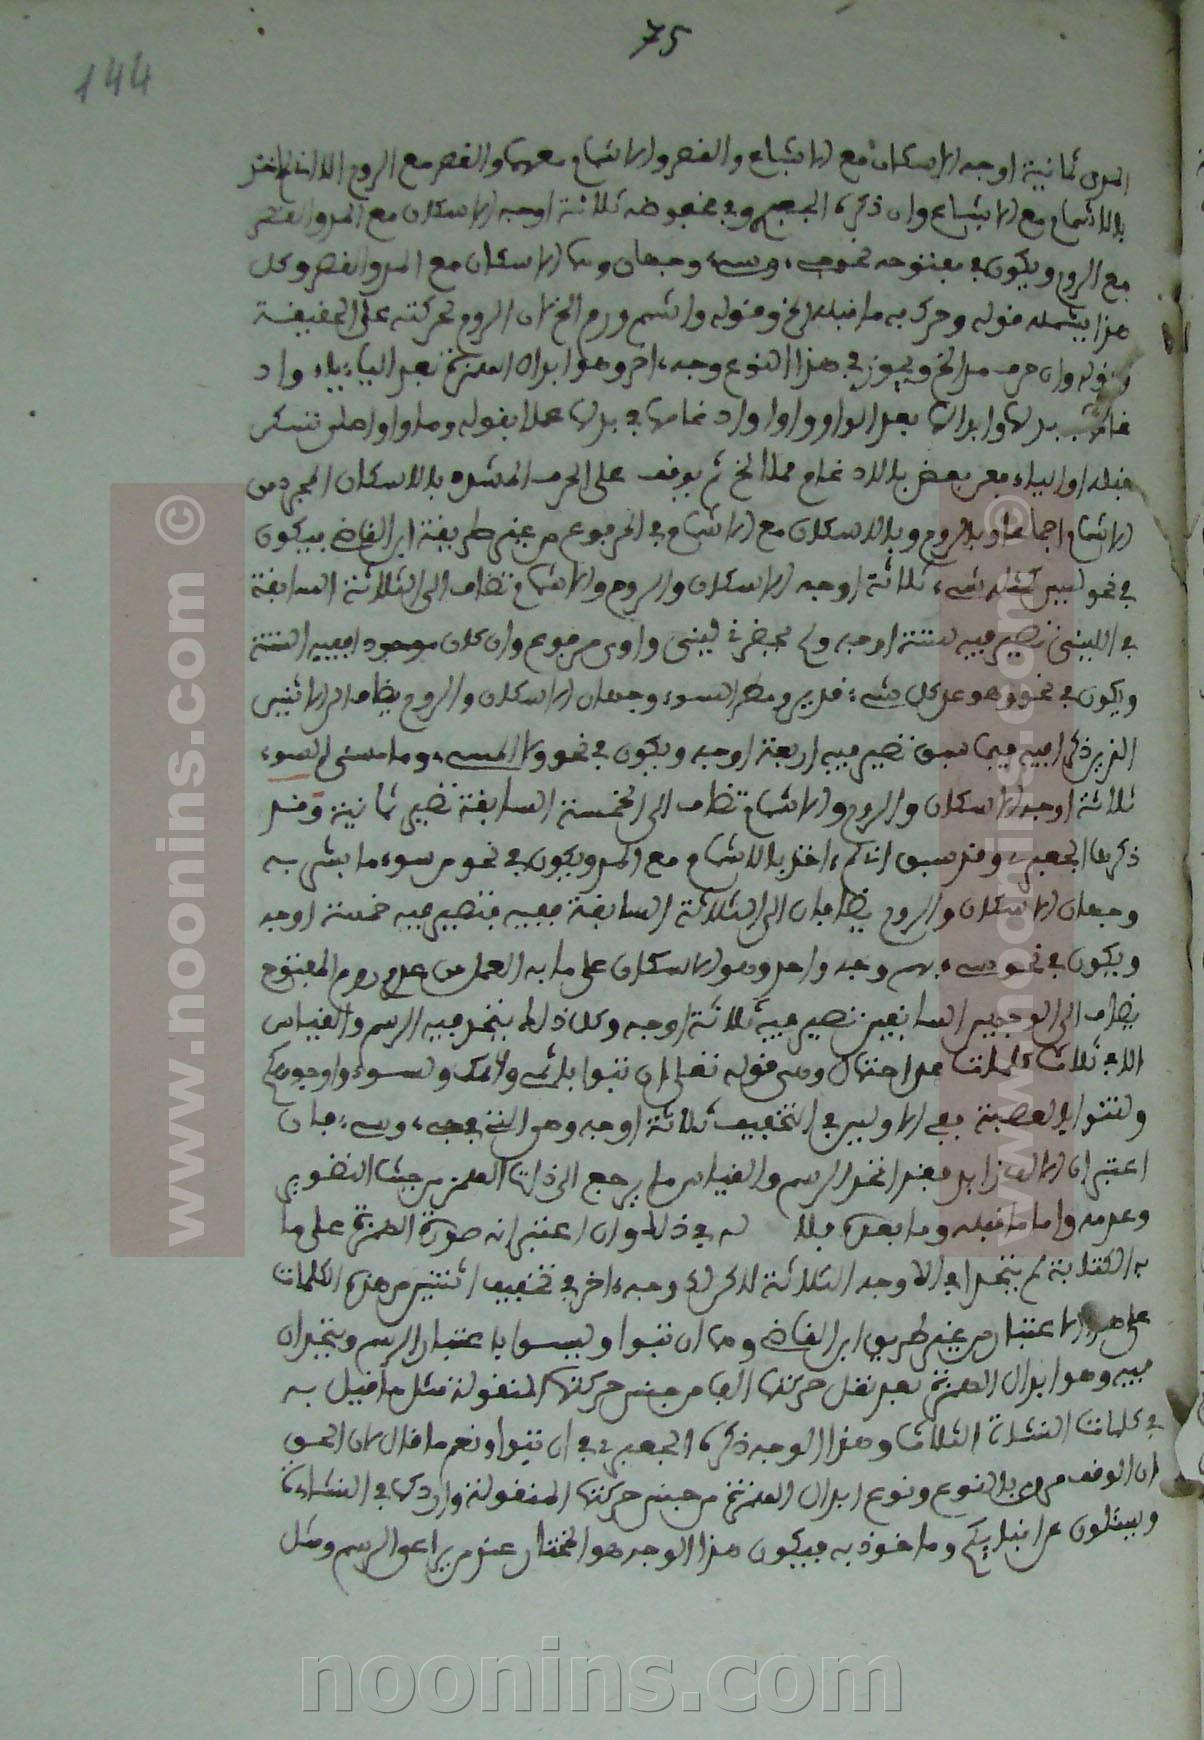 75
144
المدى ثمانية اوجه الاسكان مع الاشباع والقصر والاشمام معهما والقصر مع الروم الا ان
بالاشمام مع الاشباع وان ذكره الجعبري وفي مخفوضه ثلاثة اوجه الاسكان مع المد والقصر
مع الروم ويكون في مفتوحه نحو وجهان وهما الاسكان مع المد والقصر وكل
هذا يشمله قوله وحرك به ما قبله الخ وقوله واشمم ورم الخ لان الروم تحركته على الحقيقة
وقوله وان حرف مد الخ ويجوز في هذا النوع وجه ءاخر وهو ابدال الهمزة بعد الياء ياء واد
بدلها وابدالها بعد الواو واوا وادغامها في بدلها عملا بقوله وما واو اصلي تسكن
قبله او الياء فعن بعض بالادغام حملا الخ ثم يوقف على الحرف المشدد بالاسكان المجرد من
الاشمام اجماعا وبالروم وبالاسكان مع الاشمام في المرفوع من غير طريقة ابن القاضي فيكون
في نحو ليس كمثله شيء ثلاثة اوجه الاسكان والروم والاشمام تضاف الى الثلاثة السابقة
في اللينى تصير فيه ستة اوجه ولم يحضرني لينى واوى مرفوع وان كان موجودا ففيه الستة
ويكون في نحو وهو على كل شيء قدير ومطر السوء وجهان الاسكان والروم يضافان الى الاثنين
الذين ذكرا فيه فيما سبق تصير فيه اربعة اوجه ويكون في نحو ولا المسيء وما مسني السوء
ثلاثة اوجه الاسكان والروم والاشمام تضاف الى الخمسة السابقة تصير ثمانية وقد
ذكرها الجعبري وقد سبق انه لم ياخذ بالاشمام مع المد ويكون في نحو من سوء ما بشر به
وجهان الاسكان والروم يضافان الى الثلاثة السابقة ففيه فتصير فيه خمسة اوجه
ويكون في نحو سيء بهم وجه واحد وهو الاسكان على ما به العمل من عدم روم المفتوح
يضاف الى الوجهين السابقين تصير فيه ثلاثة اوجه وكل ذلك يتحد فيه الرسم والقياس
الا في ثلاث كلمات على احتمال وهي قوله تعلى ان تبوا باثمي وليسوءوا وجوهكم
ولتنوا بالعصبة ففي الاوليين في التخفيف ثلاثة اوجه وهي التي في وسيء فان
اعتبر ان الالف زايد فقد اتحد الرسم والقياس ما يرجع الى ذات الهمز من حيث التصوير
وعدمه واما ما قبله وما بعده فلا له في ذلك وان اعتبر انه صورة الهمزة على ما
به الكتابة لم يتحدا في الاوجه الثلاثة لاكن له وجه ءاخر في تخفيف اثنتين من هذه الكلمات
على هذا الاعتبار من غير طريق ابن القاضي وهما ان تبوا وليسوا باعتبار الرسم ويتحدان
فيه وهو ابدال الهمزة بعد نقل حركتها الفا من جنس حركتها المنقولة مثل ما قيل به
في كلمات النشاة الثلاث وهذا الوجه ذكره الجعبري في ان تبوا ونعم ما قال لان الحق
ان الوقف مروي بالنوع ونوع ابدال الهمزة من جنس حركتها المنقولة وارد كما في النشاة
ويسئلون عن انبايكم وماخوذ به فيكون هذا الوجه هو المختار عند من يراعي الرسم ومثل
www.noonins.com ©
www.noonins.com ©
noonins.com